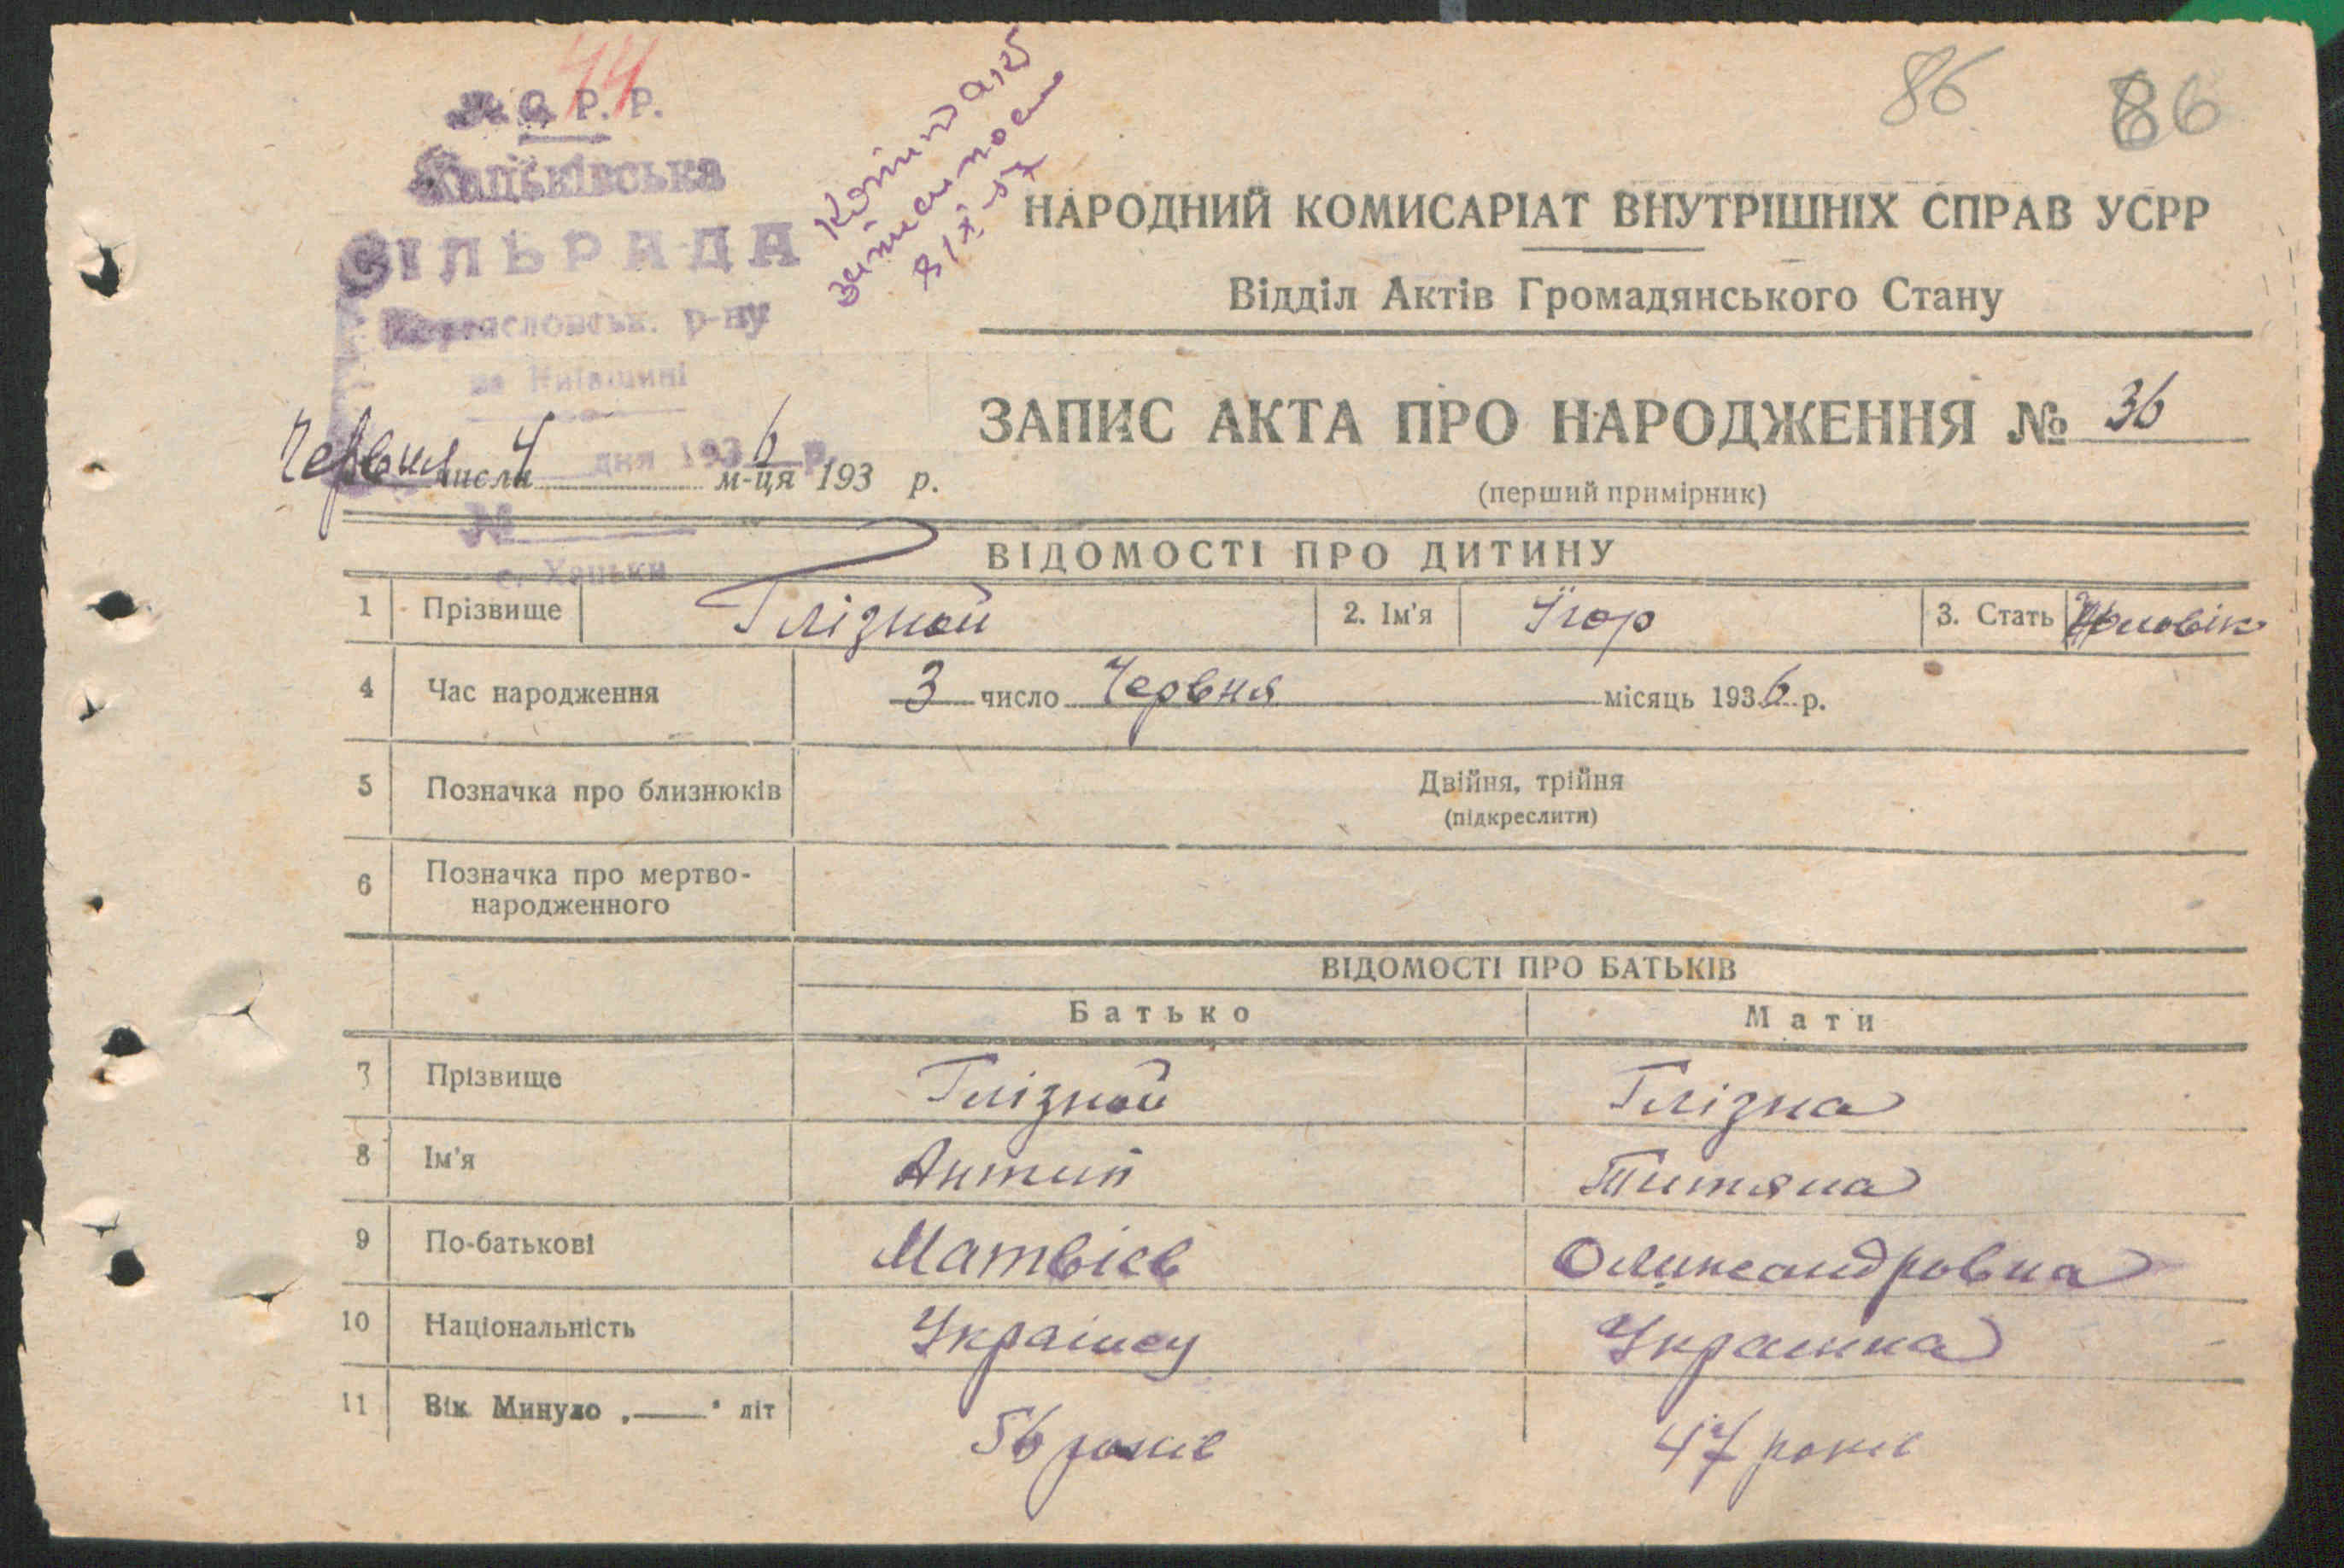 44
86 86
С. Р. Р.
СІЛЬРАДА
р-ну
на Київщині
НАРОДНИЙ КОМИСАРІАТ ВНУТРІШНІХ СПРАВ УСРР
Відділ Актів Громадянського Стану
ЗАПИС АКТА ПРО НАРОДЖЕННЯ № 36
(перший примірник)
Червня числа 4 дня 1936 р. м-ця 193 р.
№
с. Хацьки
ВІДОМОСТІ ПРО ДИТИНУ
1 Прізвище Глізной 2. Ім'я Ігор 3. Стать Чоловік
4 Час народження 3 число Червня місяць 1936 р.
5 Позначка про близнюків Двійня, трійня
(підкреслити)
6 Позначка про мертво-
народженного
ВІДОМОСТІ ПРО БАТЬКІВ
Батько Мати
7 Прізвище Глізной Глізна
8 Ім'я Антип Титяна
9 По-батькові Матвієв Олександровна
10 Національність Українец Українка
11 Вік Минуло „—" літ 56 років 47 років